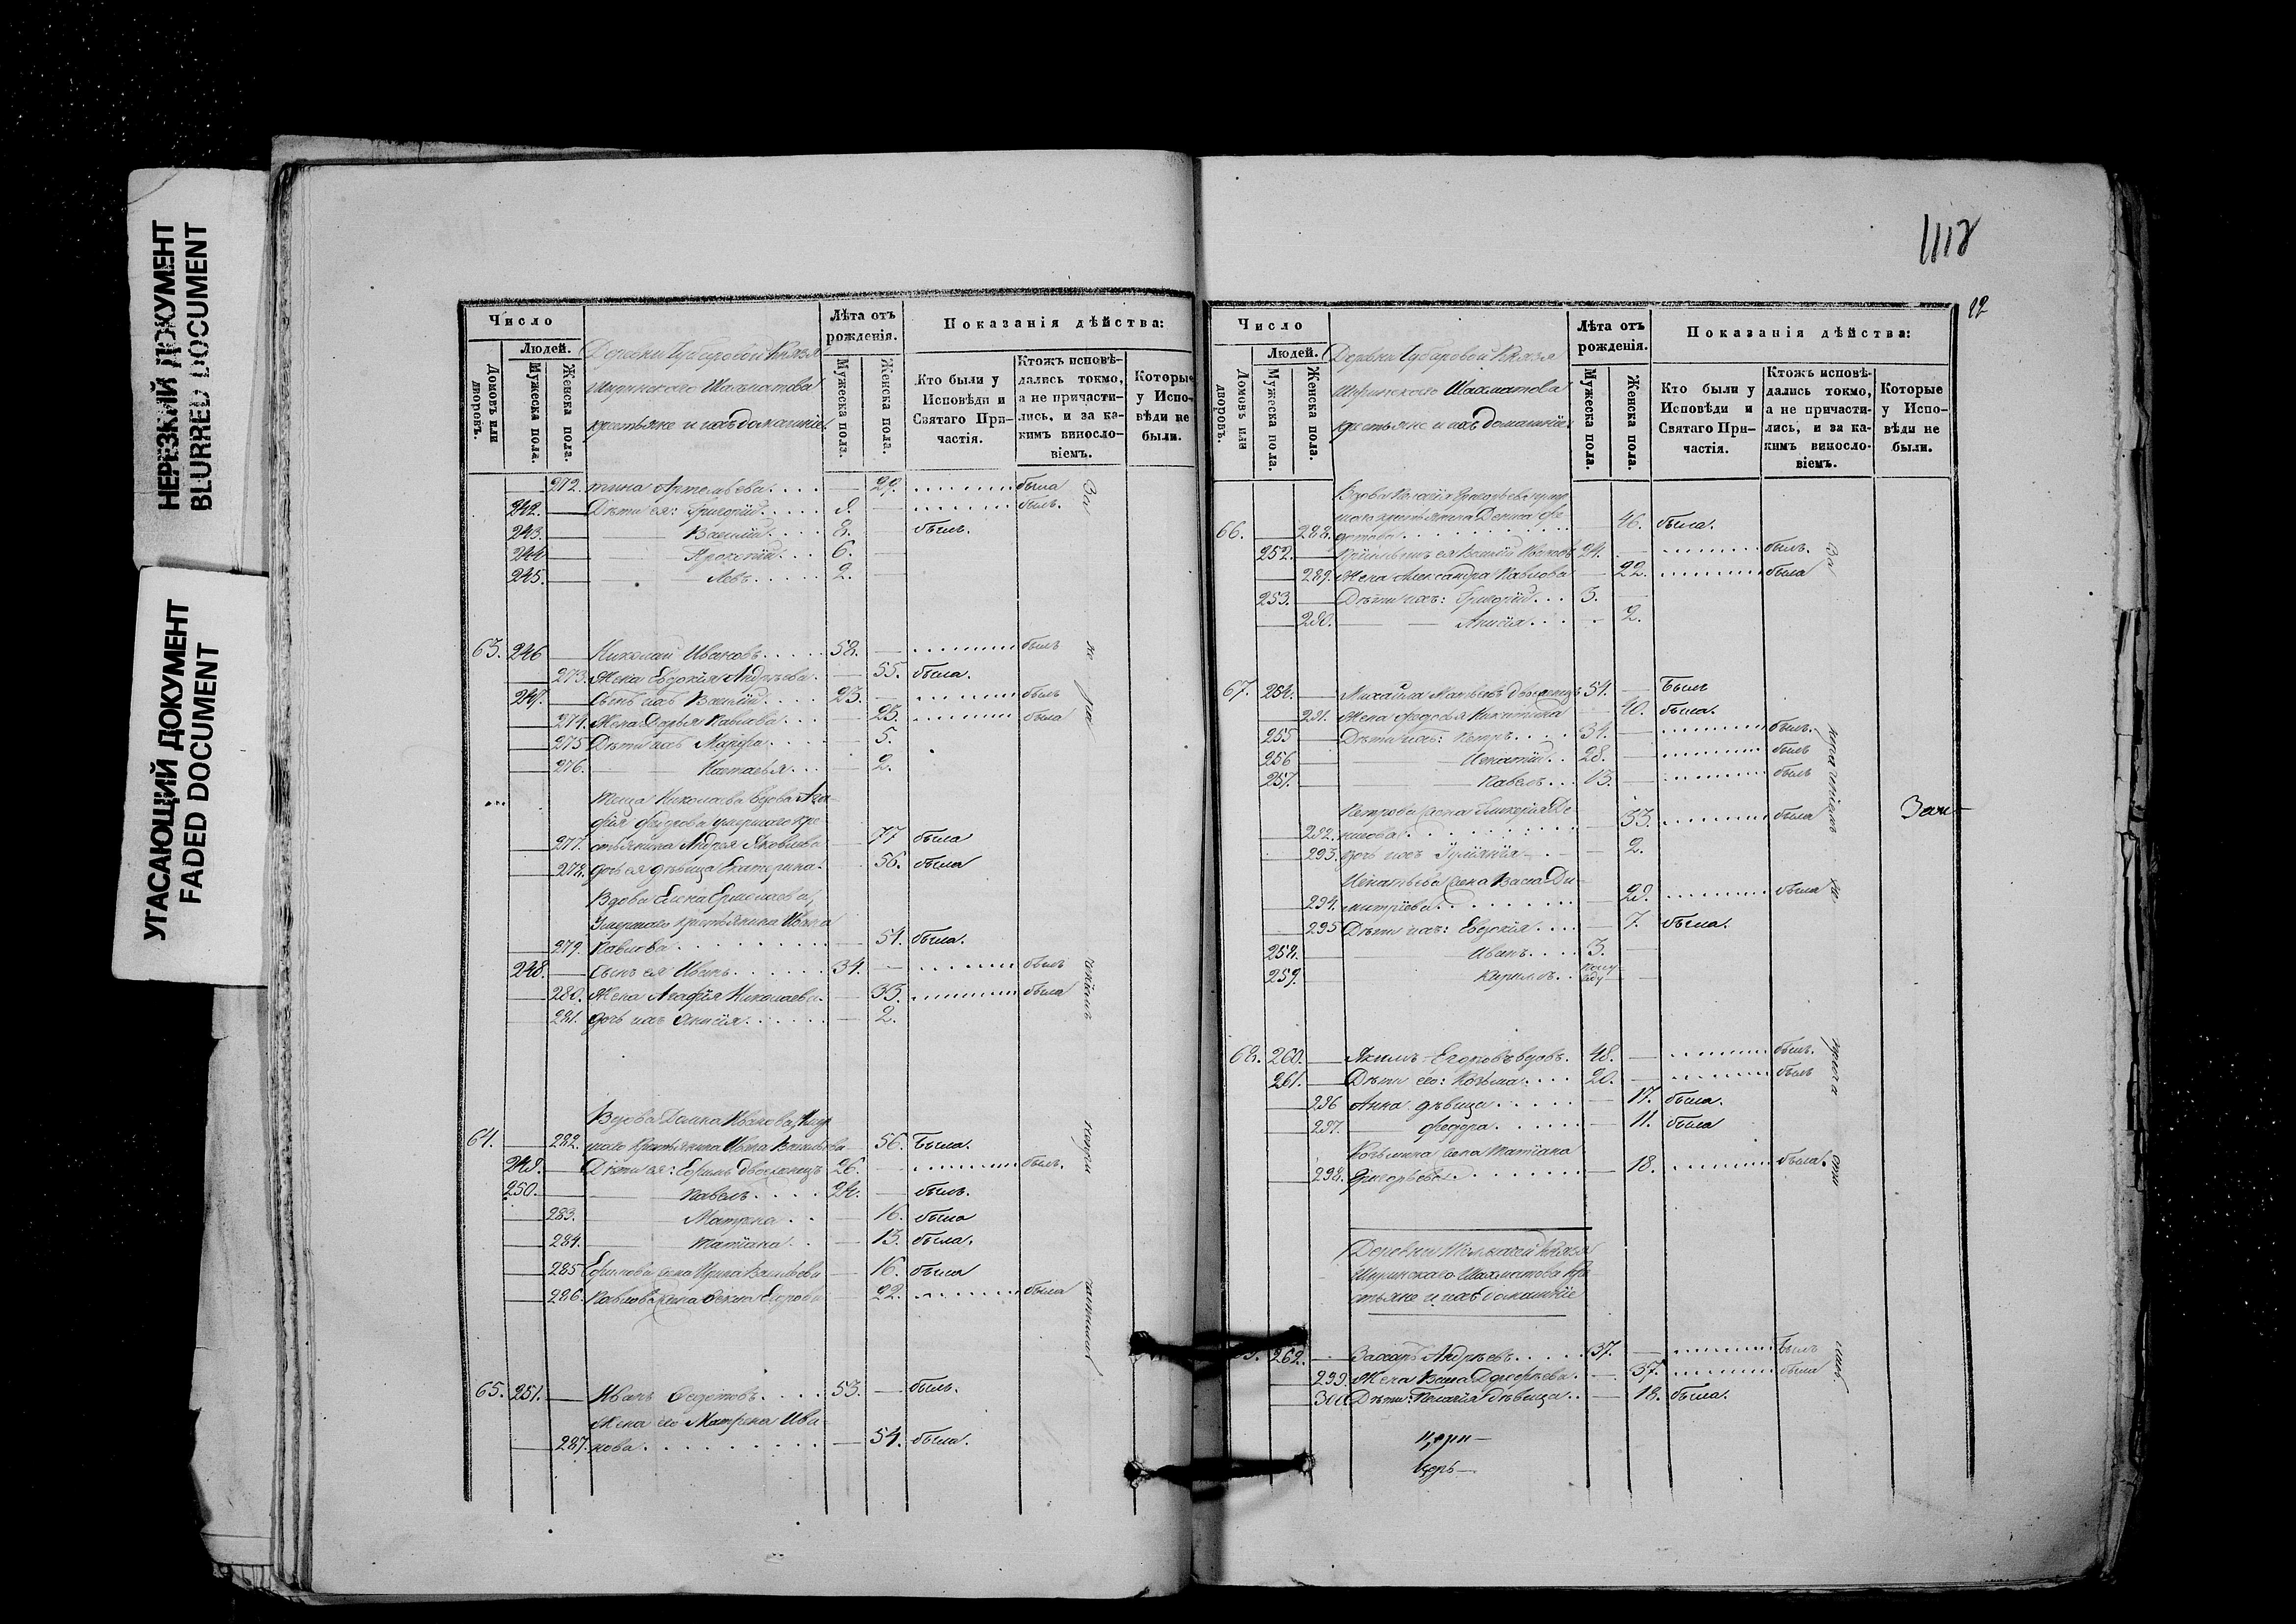 НЕРЕЗКИЙ ДОКУМЕНТ
BLURRED DOCUMENT
УГАСАЮЩИЙ ДОКУМЕНТ
FADED DOCUMENT
Число
Людей.
Домовъ или дворовъ.
Мужеска пола.
Женска пола.
Деревни Князя
Шахматова
крестьяне и ихъ домашніе
Лѣта отъ рожденія.
Мужеска пола.
Женска пола.
Показанія дѣйства:
Кто были у Исповѣди и Святаго Причастія.
Ктожъ исповѣдались токмо, а не причастились, и за какимъ винословіемъ.
Которые у Исповѣди не были.
272. тина Артемьева 29. была
242. Дѣти ея: Григорій 9. былъ.
243. Василій 8. былъ.
244 6.
245. Левъ 2.
63. 246 Николай Ивановъ 58. былъ
273. Жена Евдокія Андреева 55. была.
247. Сынъ ихъ Василій 23. былъ
274. Жена Дарья Павлова 25. была
275 Дѣти ихъ Марфа 5.
276. Настасья 2.
Теща Николаева вдова Ага-
фія Федорова умершаго кре-
277. стьянина Андрея Яковлева 77 была
278. дочь ея дѣвица Екатерина 56. была
Вдова Елена Ермолаева,
Умершаго крестьянина Ивана
279. Павлова 51. была.
248. Сынъ ея Иванъ 31. былъ
280. Жена Агафія Николаева 33. была
281. дочь ихъ Анисія 2.
Вдова Домна Иванова, умер
64. 282. шаго крестьянина Ивана Васильева 56. Была.
249. Дѣти ея: Ефимъ двоеженецъ 26. былъ.
250. Павелъ 24. былъ.
283. Матрена 16. была
284. Татіана 13. была.
285 Ефимова жена Ирина Васильева 16. была
286. Павлова жена Фекла Егорова 22. была
65. 251. Иванъ Федотовъ 53. былъ.
Жена его Матрена Ива-
287. нова 51. была.
1112
22
Число
Людей.
Домовъ или дворовъ.
Мужеска пола.
Женска пола.
Деревни Князя
Шахматова
крестьяне и ихъ домашніе
Лѣта отъ рожденія.
Мужеска пола.
Женска пола.
Показанія дѣйства:
Кто были у Исповѣди и Святаго Причастія.
Ктожъ исповѣдались токмо, а не причастились, и за какимъ винословіемъ.
Которые у Исповѣди не были.
Вдова Григорьева умер
шаго крестьянина Дениса Фе
66. 288. дотова 46. была.
252. ея Василій Ивановъ 24. былъ.
289. Жена Александра Павлова 22. была
253. Дѣти ихъ: Григорій 3.
290. Анисія 2.
67. 254. Михайла Матвѣевъ двоеженецъ 51. Былъ
291. Жена Федосья Никитина 40. была.
255 Дѣти ихъ: Петръ 31. былъ.
256 Игнатій 28. былъ
257. Павелъ 13. былъ
Петрова жена Гликерія Де-
292. нисова 33. была
293. дочь ихъ Іуліанія 2.
Игнатьева жена Васса Ди-
294. митріева 29. была
295 Дѣти ихъ: Евдокія 7. была.
258. Иванъ 3.
259. Кирилъ
68. 260. Якимъ Егоровъ вдовъ 48. былъ.
261. Дѣти его: Козьма 20. былъ
296 Анна дѣвица 17. была.
297. Федора 11. была
Козьмина жена Татіана
298. Григорьева 18. была.
Деревни Князя
Шахматова кре
стьяне и ихъ домашніе
262. Захаръ Андреевъ 37. Былъ
299. Жена Васса Дорофеева 37. была
300. Дѣти: Пелагія дѣвица 18. была.